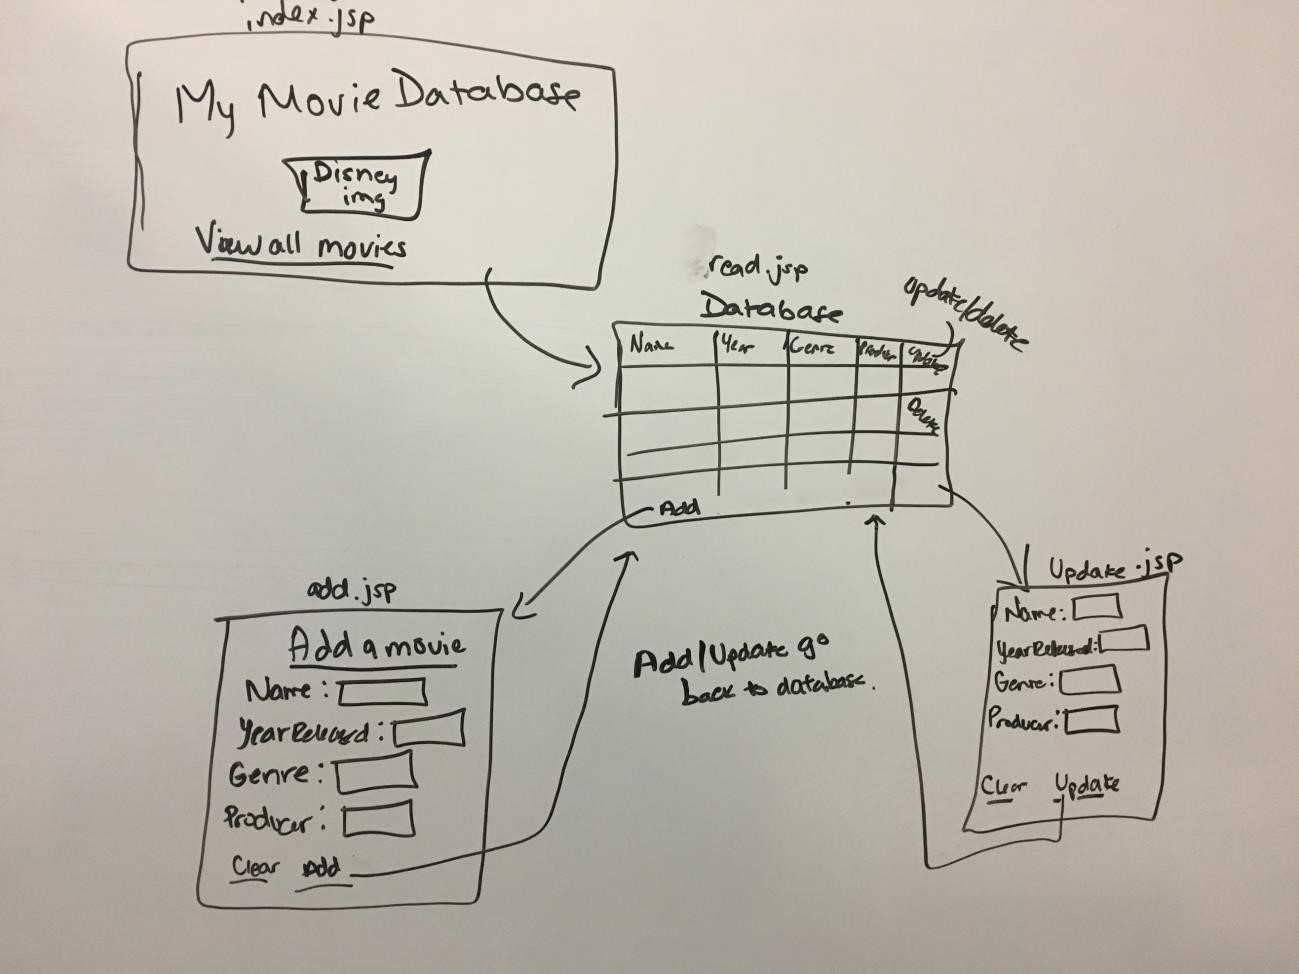 index.jsp
My Movie Database
Disney
img
View all movies
read.jsp
Database
update/delete
Name Year Genre Producer Update
Delete
Add
add.jsp
Add a movie
Name:
YearReleased:
Genre:
Producer:
Clear Add
Add/Update go
back to database.
Update.jsp
Name:
YearReleased:
Genre:
Producer:
Clear Update